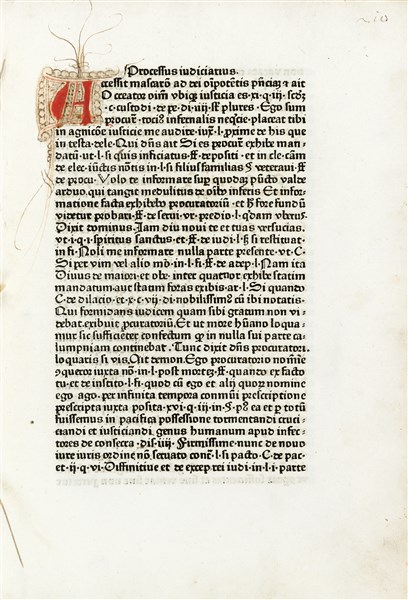 Processus iudiciarius.
Accessit mascarõ ad dei oĩpotẽtis pñciaʒ ⁊ ait
O creator oĩm vbiqʒ iusticia es·xi·q·iii·scđʒ
·c·custodi·de pe·di·iiii·ff·plures·Ego sum
procur̃·toci⁹ infernalis neq̃cie·placeat tibi
in agnicõe iusticie me audire·iux̃·l·ꝓxime de his que
in testa·dele·Qui dñs ait Si es procur̃ exhibe man-
datũ·ut·l·si quis inficiatus·ff·depositi·et in cle·cãm
de elec·iũctis nõtis in·l·si filiusfamilias § veterani·ff·
de procu·Volo te informare sup quodaʒ pũcto valde
arduo, qui tangit medulitus de oĩbꝰ inferis Et infor-
matione facta exhibeto procuratoriũ·et hͦ fore fundũ
videtur probari·ff·de serui·vr·predio·l·q̃dam vberus·
Dixit dominus·Iam diu noui te et tuas versucias·
vt·i·q·i·spiritus sanctus·et·ff·de iudi·l·si restituat·
in fi·Noli me informare nulla parte presente·vt·C·
Si per vim vel alio mõ·in·l·fi·ff·de arep·l·Nam ita
Diuus de maiori et obe·inter quatuor exhibe statim
mandatum aut statum foras exibis·ar·l·Si quando
C·de dilacio·et·x·c·vij·di·nobilissim⁹ cũ ibi notatis·
Qui formidans iudicem quam sibi gratum non vi-
debat·exibuit ꝓcuratoriũ·Et ut more hũano loqua-
mur sic sufficiẽter confectum qꝫ in nulla sui parte ca-
lumpniam continebat·Tunc dixit dñs procuratori·
loquaris si vis·Ait demon·Ego procuratorio noĩne
ꝯqueror iuxta nõ·in·l·post mortẽ·ff·quando ex facto
tu·et de instito·l·fi·quod cũ ego et alij quorʒ nomine
ego ago·per infinita tempora conmũi prescriptione
prescripta iuxta posita·xvi·q·iii·in·§·p⁹ ea et ꝑ totũ
fuissemus in pacifica possessione tormentandi cruci-
ciandi et iusticiandi·genus humanum apud infe-
tores de consecra·dis·iiij·Firmissime·nunc de nouo
iure iuris ordine nõ seruato conẽ·l·si pacto·C·de pac·
et·ij·q·vi·Diffinitiue et de excep·rei iudi·in·l·i·parte